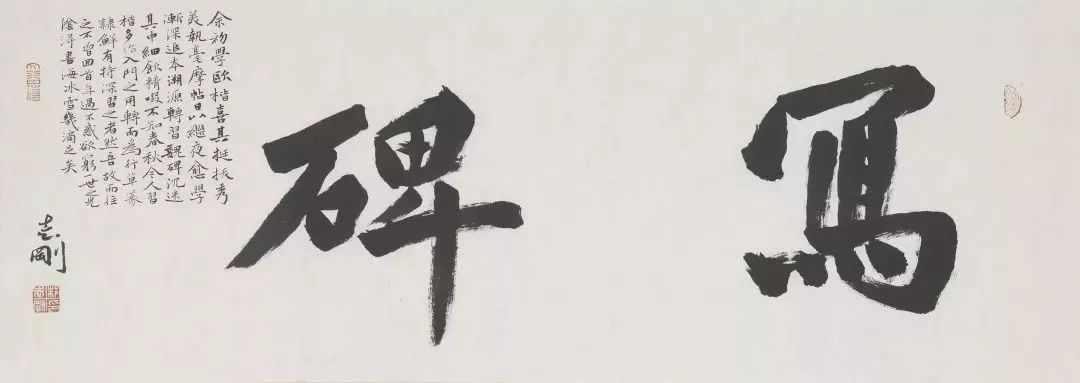 寫碑
余初學歐楷喜其挺拔秀
美執毫摩帖日以繼夜愈學
漸深追本溯源轉習魏碑沉迷
其中細飲精啜不知春秋今人習
楷多作入門之用轉而為行草篆
隸鮮有持深習之者然吾故而往
之不曾回首年過不惑欲窮一世之光
陰潯書海冰雪幾滴之矣
志剛